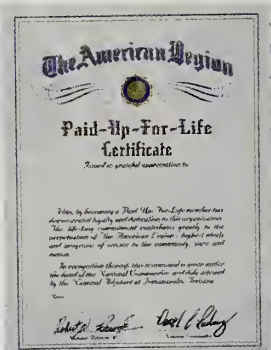 The American Legion
Paid-Up-For-Life
Certificate
Issued in grateful appreciation to
by becoming a Paid Up For Life member has
demonstrated loyalty and dedication to this organization
This life-long commitment contributes greatly to the
perpetuation of The American Legion's highest ideals
and programs of service to the community, state and
nation.
In recognition thereof, this testimonial is given under
the hand of the National Commander and duly attested
by the National Adjutant at Indianapolis, Indiana